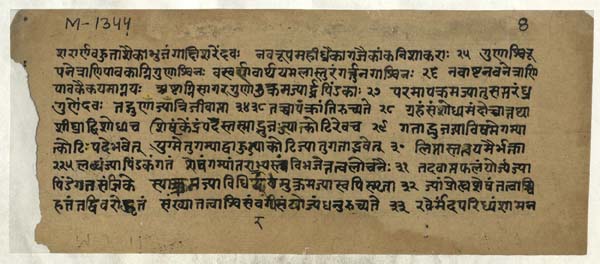 M-1344
8
शरार्णवहुताशैकाभुजंगाक्षिशरेंदवः नवरूपमहीध्रैकागजैकांकनिशाकराः २५ गुणाश्विरू
पनेत्राणिपावकाग्निगुणाश्विनः वस्वर्णवार्थयमलास्तुरंगर्तुनगाश्विनः २६ नवाष्टनवनेत्राणि
पावकैकयमाग्नयः अष्टाग्निसागरगुणाउत्क्रमज्यार्द्धपिंडकाः २७ परमापक्रमज्यातुसप्तरंध्र
गुणेंदवः तद्गुणाज्यात्रिजीवाप्ता ३४३८ तच्चापंक्रांतिरुच्यते २८ ग्रहंसंशोध्यमंदोच्चात्तथा
शीघ्राद्विशोध्यच शेषंकेंद्रंपदंतस्माद्भुजज्याकोटिरेवच २९ गताद्भुजज्याविषमेगम्या
त्कोटिःपदेभवेत् युग्मेतुगम्याद्वाहुज्याकोटिज्यातुगताद्भवेत् ३० लिप्तास्तत्वयमैर्भक्ता
२२५ लब्धंज्यापिंडकंगतं गतगम्यांतराभ्यस्तंविभजेत्तत्वलोचनैः ३१ तदवाप्तफलंयोज्यंज्या
पिंडेगतसंज्ञिके स्यात्क्रमज्याविधिरयमुत्क्रमज्यास्वपिस्मृतः ३२ ज्यांप्रोज्झ्यशेषंतत्वाश्वि
हतंतद्विवरोद्धृतं संख्यातत्वाश्विसंवर्गेसंयोज्यंधनुरुच्यते ३३ रवेर्मंदपरिध्यंशामन